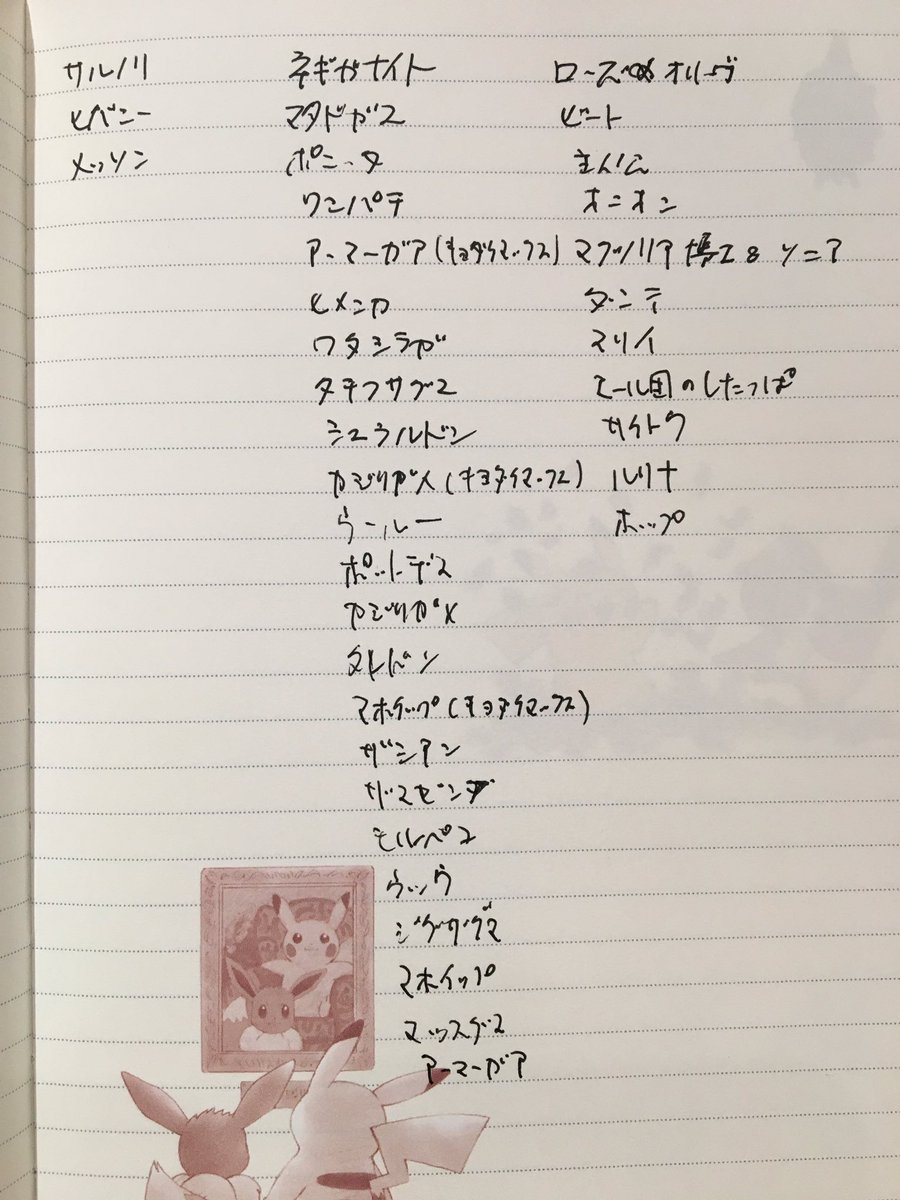 サルノリ
ヒバニー
メッソン
ネギガナイト
マタドガス
ポニータ
ワンパチ
アーマーガア(キョダイマックス)
ヒメンカ
ワタシラガ
タチフサグマ
ジュラルドン
カジリガメ(キョダイマックス)
ウールー
ポットデス
カジリガメ
タルドン
マホイップ(キョダイマックス)
ザシアン
ザマゼンタ
モルペコ
ウッウ
ジグザグマ
マホイップ
マッスグマ
アーマーガア
ローズ& オリーヴ
ビート
主人公
オニオン
マグノリア博士 & ソニア
ダンデ
マリィ
エール団のしたっぱ
サイトウ
ルリナ
ホップ